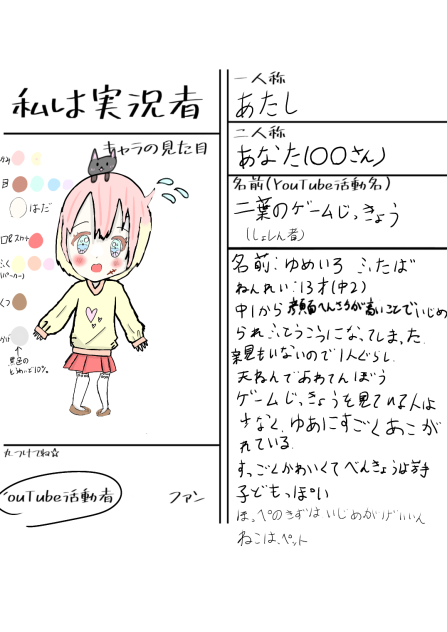 私は実況者
キャラの見た目
かみ
目
はだ
口とスカート
ふく
(パーカー)
くつ
黒色の
とうめいど10%
丸つけてね☆
ouTube活動者
ファン
一人称
あたし
二人称
あなた(〇〇さん)
名前(YouTube活動名)
二葉のゲームじっきょう
(しょしん者)
名前:ゆめいろ ふたば
ねんれい:13才(中2)
中1から顔面へんさちが高いことでいじめ
られふとうこうになってしまった
親もいないので1人ぐらし
天ねんであわてんぼう
ゲームじっきょうを見ている人は
少なく、ゆあにすごくあこが
れている
すっごくかわいくてべんきょうは苦手
子どもっぽい
ほっぺのきずはいじめがげいいん
ねこは、ペット